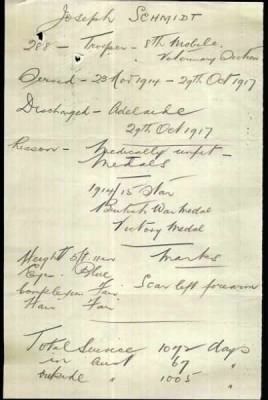 Joseph SCHMIDT
288 - Trooper - 8th Mobile
Veterinary Section
Period - 23 Nov 1914 - 29th Oct 1917
Discharged - Adelaide
29th Oct 1917
Reason - Medically unfit -
Medals
1914/15 Star
British War Medal
Victory Medal
Height 5ft 11 Marks
Eyes Blue
Complexion Fair Scar left forearm
Hair Fair
Total Service 1072 days
in Aust 67 "
outside 1005 "